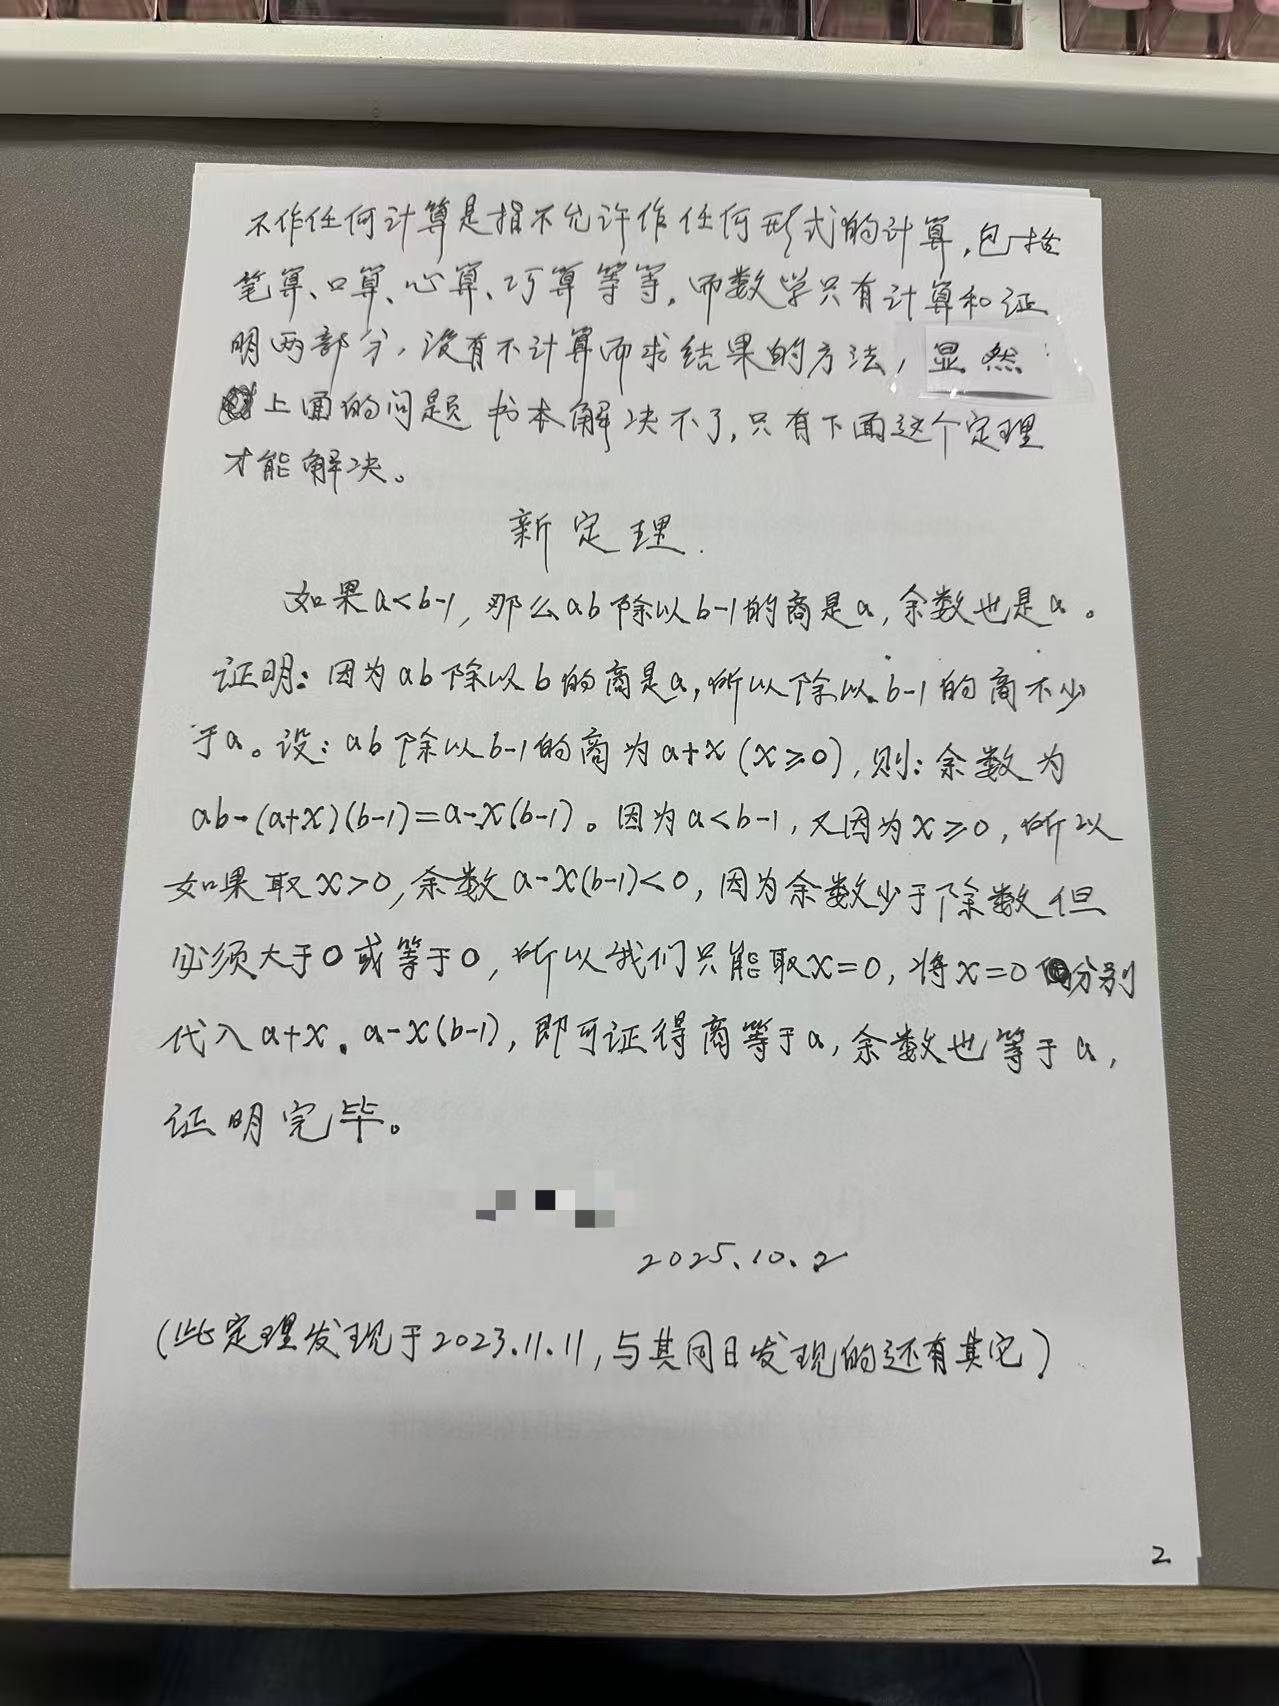 不作任何计算是指不允许作任何形式的计算,包括
笔算、口算、心算、巧算等等。而数学只有计算和证
明两部分,没有不计算而求结果的方法,显然
上面的问题书本解决不了,只有下面这个定理
才能解决。
新定理.
如果a<b-1,那么ab除以b-1的商是a,余数也是a。
证明:因为ab除以b的商是a,所以除以b-1的商不少
于a。设:ab除以b-1的商为a+x(x≥0),则:余数为
ab-(a+x)(b-1)=a-x(b-1)。因为a<b-1,又因为x≥0,所以
如果取x>0,余数a-x(b-1)<0,因为余数少于除数但
必须大于0或等于0,所以我们只能取x=0,将x=0分别
代入a+x、a-x(b-1),即可证得商等于a,余数也等于a,
证明完毕。
2025.10.2
(此定理发现于2023.11.11,与其同日发现的还有其它)
2